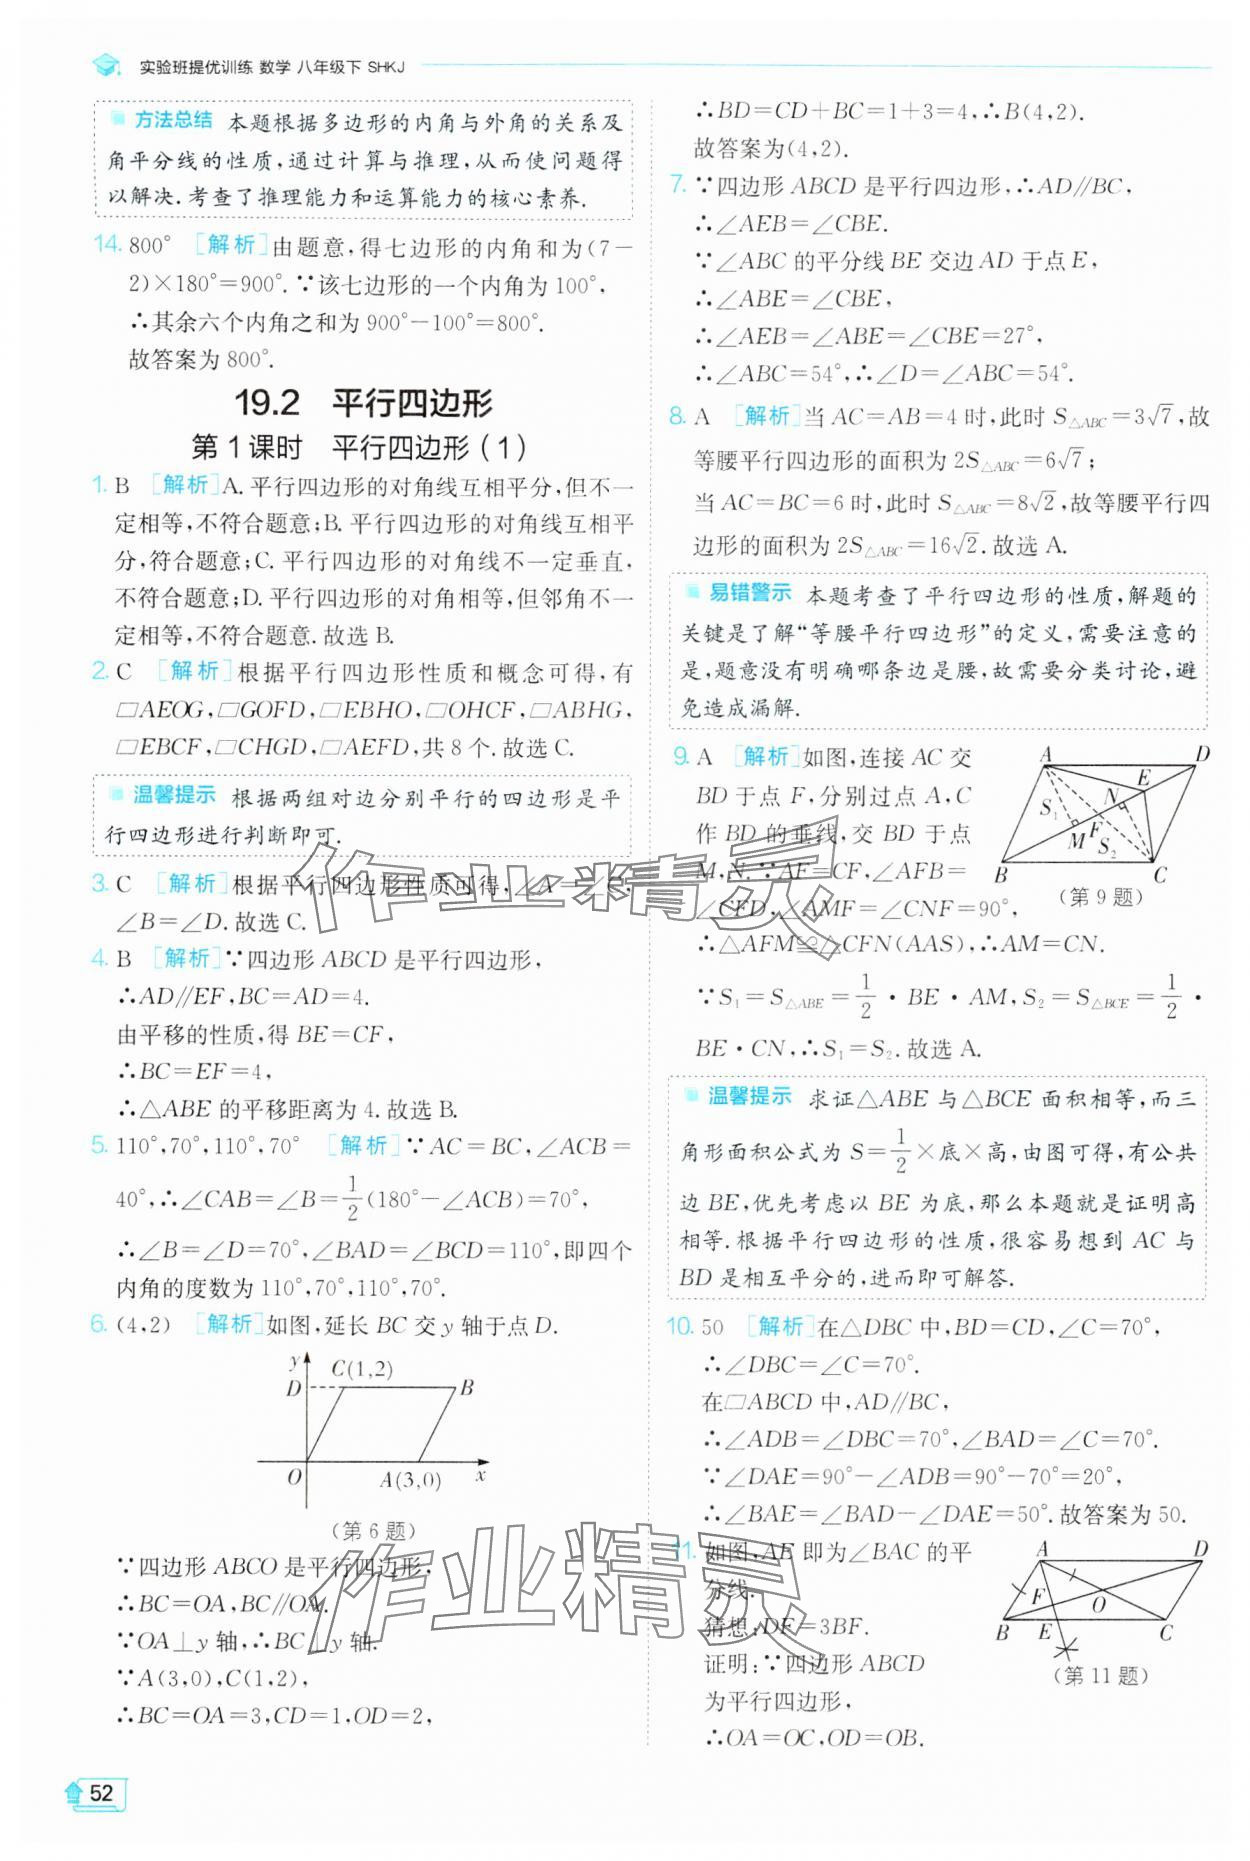 实验班提优训练 数学 八年级下 SHKJ
方法总结 本题根据多边形的内角与外角的关系及
角平分线的性质,通过计算与推理,从而使问题得
以解决.考查了推理能力和运算能力的核心素养.
14. 800° [解析]由题意,得七边形的内角和为(7-
2)×180°=900°.∵该七边形的一个内角为100°,
∴其余六个内角之和为900°-100°=800°.
故答案为800°.
19.2 平行四边形
第1课时 平行四边形(1)
1. B [解析]A.平行四边形的对角线互相平分,但不一
定相等,不符合题意;B.平行四边形的对角线互相平
分,符合题意;C.平行四边形的对角线不一定垂直,
不符合题意;D.平行四边形的对角相等,但邻角不一
定相等,不符合题意.故选B.
2. C [解析]根据平行四边形性质和概念可得,有
▱AEOG,▱GOFD,▱EBHO,▱OHCF,▱ABHG,
▱EBCF,▱CHGD,▱AEFD,共8个.故选C.
温馨提示 根据两组对边分别平行的四边形是平
行四边形进行判断即可.
3. C [解析]根据平行四边形性质可得,∠A=∠C,
∠B=∠D.故选C.
4. B [解析]∵四边形ABCD是平行四边形,
∴AD∥EF,BC=AD=4.
由平移的性质,得BE=CF,
∴BC=EF=4,
∴△ABE的平移距离为4.故选B.
5. 110°,70°,110°,70° [解析]∵AC=BC,∠ACB=
40°,∴∠CAB=∠B=1/2(180°-∠ACB)=70°,
∴∠B=∠D=70°,∠BAD=∠BCD=110°,即四个
内角的度数为110°,70°,110°,70°.
6. (4,2) [解析]如图,延长BC交y轴于点D.
y
C(1,2)
D
B
O
A(3,0)
x
(第6题)
∵四边形ABCO是平行四边形,
∴BC=OA,BC∥OA.
∵OA⊥y轴,∴BC⊥y轴.
∵A(3,0),C(1,2),
∴BC=OA=3,CD=1,OD=2,
∴BD=CD+BC=1+3=4,∴B(4,2).
故答案为(4,2).
7. ∵四边形ABCD是平行四边形,∴AD∥BC,
∴∠AEB=∠CBE.
∵∠ABC的平分线BE交边AD于点E,
∴∠ABE=∠CBE,
∴∠AEB=∠ABE=∠CBE=27°,
∴∠ABC=54°,∴∠D=∠ABC=54°.
8. A [解析]当AC=AB=4时,此时S△ABC=3√7,故
等腰平行四边形的面积为2S△ABC=6√7;
当AC=BC=6时,此时S△ABC=8√2,故等腰平行四
边形的面积为2S△ABC=16√2.故选A.
易错警示 本题考查了平行四边形的性质,解题的
关键是了解“等腰平行四边形”的定义,需要注意的
是,题意没有明确哪条边是腰,故需要分类讨论,避
免造成漏解.
9. A [解析]如图,连接AC交
BD于点F,分别过点A,C
作BD的垂线,交BD于点
M,N.∵AF=CF,∠AFB=
∠CFD,∠AMF=∠CNF=90°,
A
D
E
N
S₁
F
M
S₂
B
C
(第9题)
∴△AFM≌△CFN(AAS),∴AM=CN.
∵S₁=S△ABE=1/2·BE·AM,S₂=S△BCE=1/2·
BE·CN,∴S₁=S₂.故选A.
温馨提示 求证△ABE与△BCE面积相等,而三
角形面积公式为S=1/2×底×高,由图可得,有公共
边BE,优先考虑以BE为底,那么本题就是证明高
相等.根据平行四边形的性质,很容易想到AC与
BD是相互平分的,进而即可解答.
10. 50 [解析]在△DBC中,BD=CD,∠C=70°,
∴∠DBC=∠C=70°.
在▱ABCD中,AD∥BC,
∴∠ADB=∠DBC=70°,∠BAD=∠C=70°.
∵∠DAE=90°-∠ADB=90°-70°=20°,
∴∠BAE=∠BAD-∠DAE=50°.故答案为50.
11. 如图,AE即为∠BAC的平
分线.
猜想:DF=3BF.
证明:∵四边形ABCD
为平行四边形,
∴OA=OC,OD=OB.
A
D
F
O
B
E
C
(第11题)
作业精灵
作业精灵
52